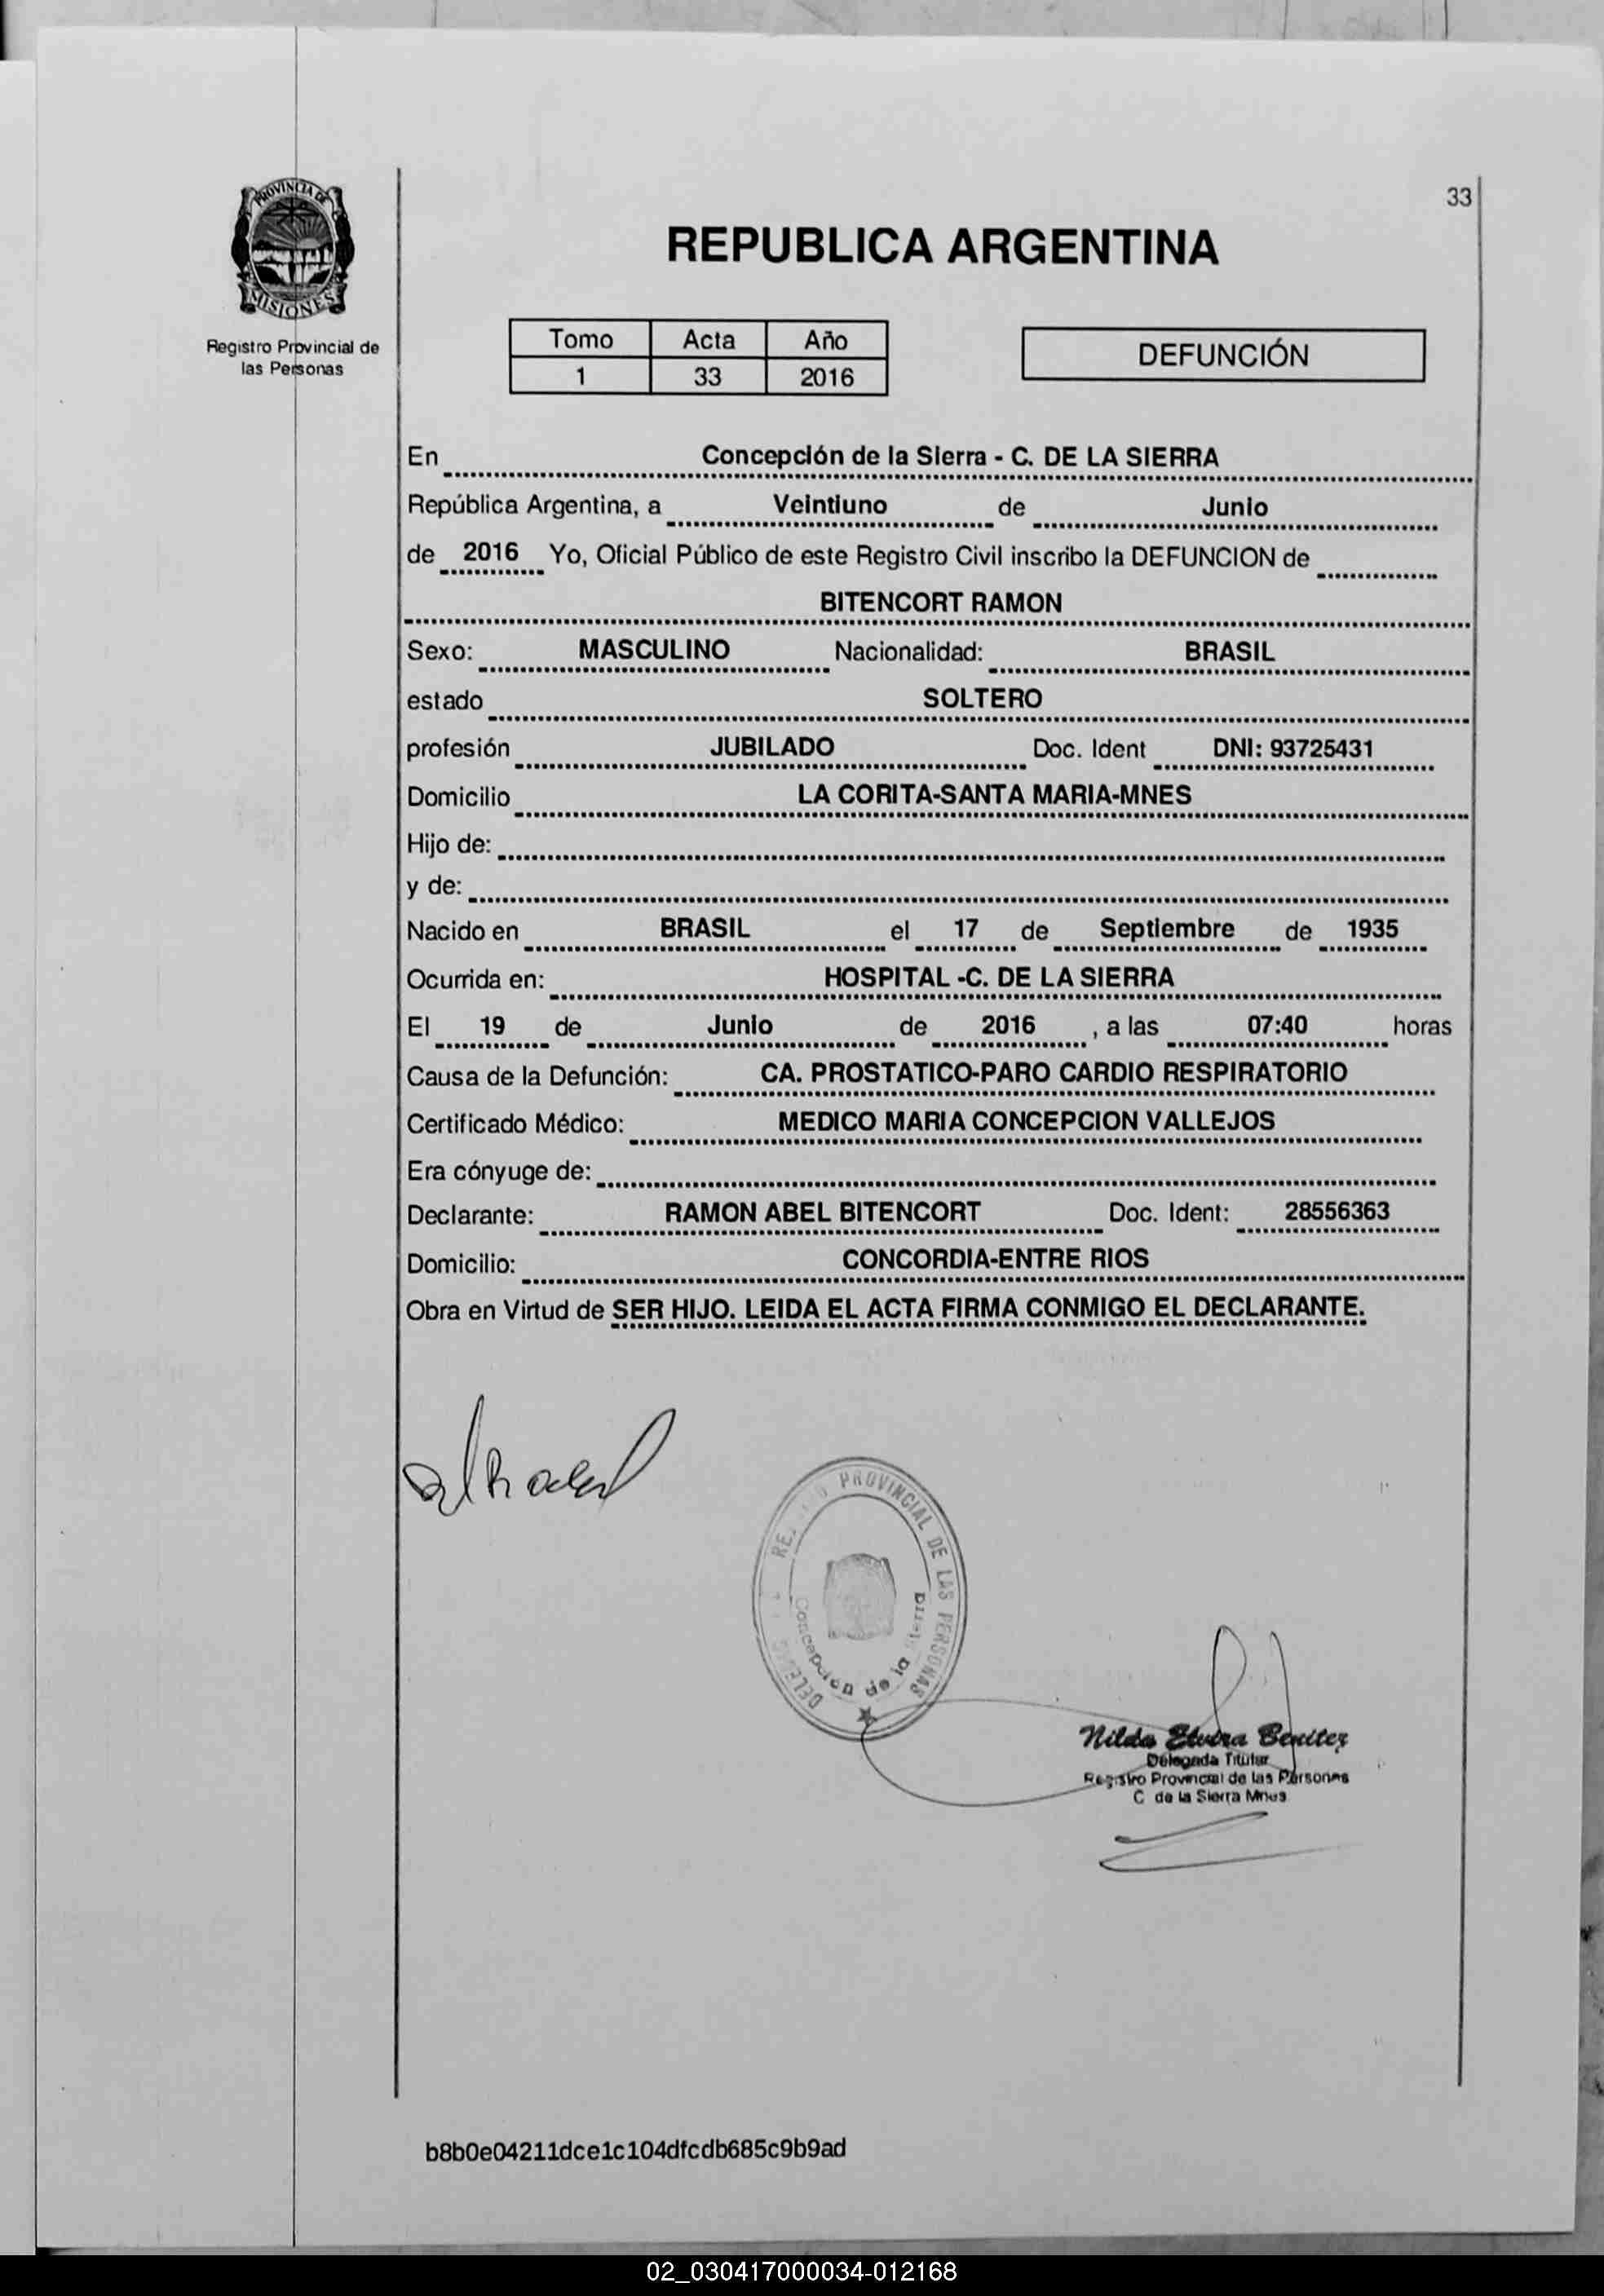 33
PROVINCIA DE
MISIONES
Registro Provincial de
las Personas
REPUBLICA ARGENTINA
Tomo Acta Año
1 33 2016
DEFUNCIÓN
En Concepción de la Sierra - C. DE LA SIERRA
República Argentina, a Veintiuno de Junio
de 2016 Yo, Oficial Público de este Registro Civil inscribo la DEFUNCION de
BITENCORT RAMON
Sexo: MASCULINO Nacionalidad: BRASIL
estado SOLTERO
profesión JUBILADO Doc. Ident DNI: 93725431
Domicilio LA CORITA-SANTA MARIA-MNES
Hijo de:
y de:
Nacido en BRASIL el 17 de Septiembre de 1935
Ocurrida en: HOSPITAL -C. DE LA SIERRA
El 19 de Junio de 2016 , a las 07:40 horas
Causa de la Defunción: CA. PROSTATICO-PARO CARDIO RESPIRATORIO
Certificado Médico: MEDICO MARIA CONCEPCION VALLEJOS
Era cónyuge de:
Declarante: RAMON ABEL BITENCORT Doc. Ident: 28556363
Domicilio: CONCORDIA-ENTRE RIOS
Obra en Virtud de SER HIJO. LEIDA EL ACTA FIRMA CONMIGO EL DECLARANTE.
PROVINCIAL DE LAS PERSONAS
Concepción de la Sierra
Nilda Elvira Benitez
Delegada Titular
Registro Provincial de las Personas
C de la Sierra Mnes
b8b0e04211dce1c104dfcdb685c9b9ad
02_030417000034-012168